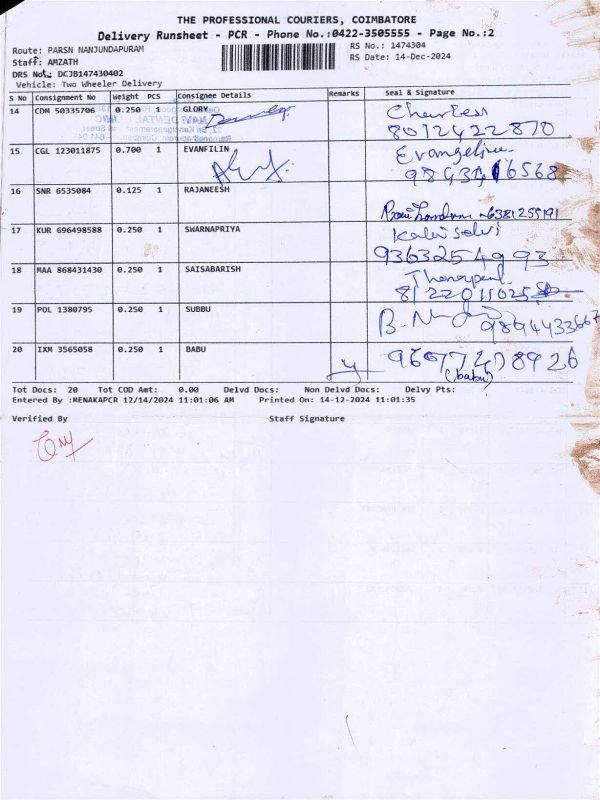 THE PROFESSIONAL COURIERS, COIMBATORE
Delivery Runsheet - PCR - Phone No.:0422-3505555 - Page No.:2
Route: PARSN NANJUNDAPURAM RS No.: 1474304
Staff: AMZATH RS Date: 14-Dec-2024
DRS No.: DCJB147430402
Vehicle: Two Wheeler Delivery
S No Consignment No Weight PCS Consignee Details Remarks Seal & Signature
14 CDM 50335706 0.250 1 GLORY Charless
8012422870
15 CGL 123011875 0.700 1 EVANFILIN Evangeline
16 SNR 6535084 0.125 1 RAJANEESH
6381255191
17 KUR 696498588 0.250 1 SWARNAPRIYA Kalai Selvi
9363254993
18 MAA 868431430 0.250 1 SAISABARISH
19 POL 1380795 0.250 1 SUBBU
20 IXM 3565058 0.250 1 BABU
(babu)
Tot Docs: 20 Tot COD Amt: 0.00 Delvd Docs: Non Delvd Docs: Delvy Pts:
Entered By :MENAKAPCR 12/14/2024 11:01:06 AM Printed On: 14-12-2024 11:01:35
Verified By Staff Signature